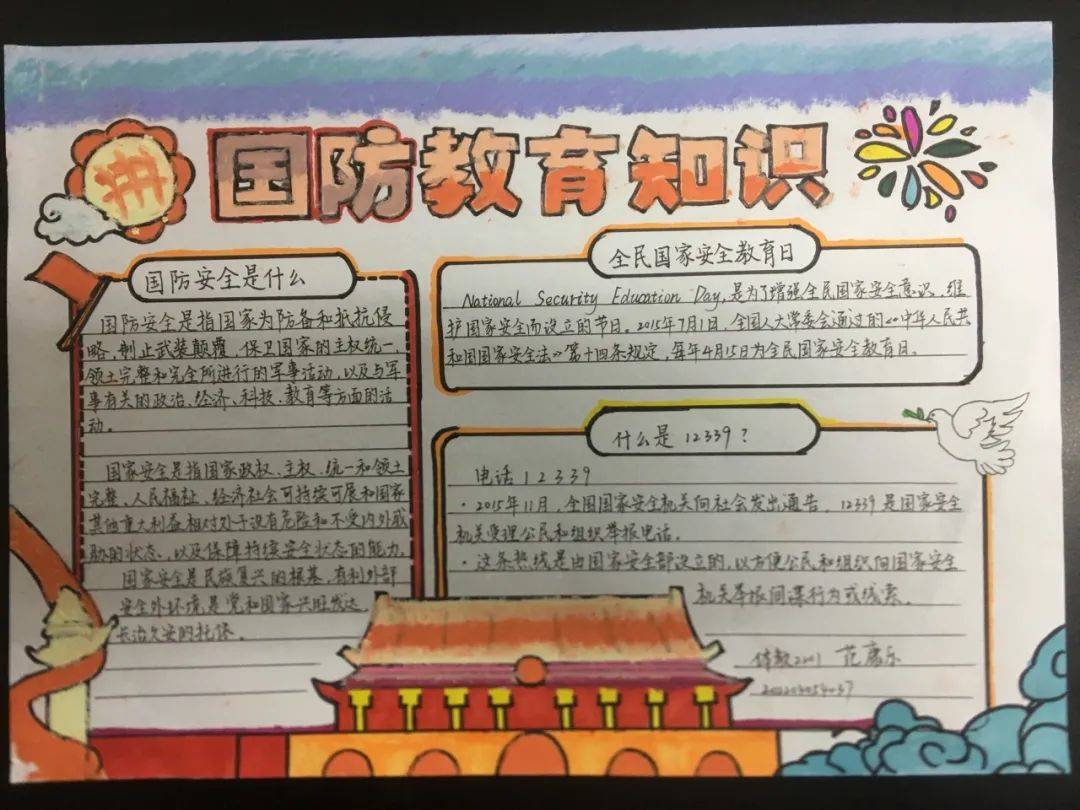 国防教育知识
国防安全是什么
国防安全是指国家为防备和抵抗侵
略，制止武装颠覆，保卫国家的主权统一、
领土完整和完全所进行的军事活动，以及与军
事有关的政治、经济、科技、教育等方面的活
动。
国家安全是指国家政权、主权、统一和领土
完整、人民福祉、经济社会可持续可展和国家
其他重大利益相对处于没有危险和不受内外威
胁的状态、以及保障持续安全状态的能力。
国家安全是民族复兴的根基，有利外部
安全外环境是党和国家兴旺发达、
长治久安的托保。
全民国家安全教育日
National Security Education Day，是为了增强全民国家安全意识，维
护国家安全而设立的节日。2015年7月1日，全国人大常委会通过的《中华人民共
和国国家安全法》第十四条规定，每年4月15日为全民国家安全教育日。
什么是 12339？
电话12339
·2015年11月，全国国家安全机关向社会发出通告，12339是国家安全
机关受理公民和组织举报电话。
·这条热线是由国家安全部设立的，以方便公民和组织向国家安全
机关举报间谍行为或线索。
体教2201 范
202203054037